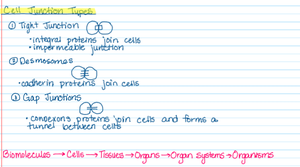 Cell Junction Types
① Tight Junction
• integral proteins join cells
• impermeable junction
② Desmosomes
• cadherin proteins join cells
③ Gap Junctions
• connexons proteins join cells and forms a
tunnel between cells
Biomolecules → Cells → Tissues → Organs → Organ systems → Organisms